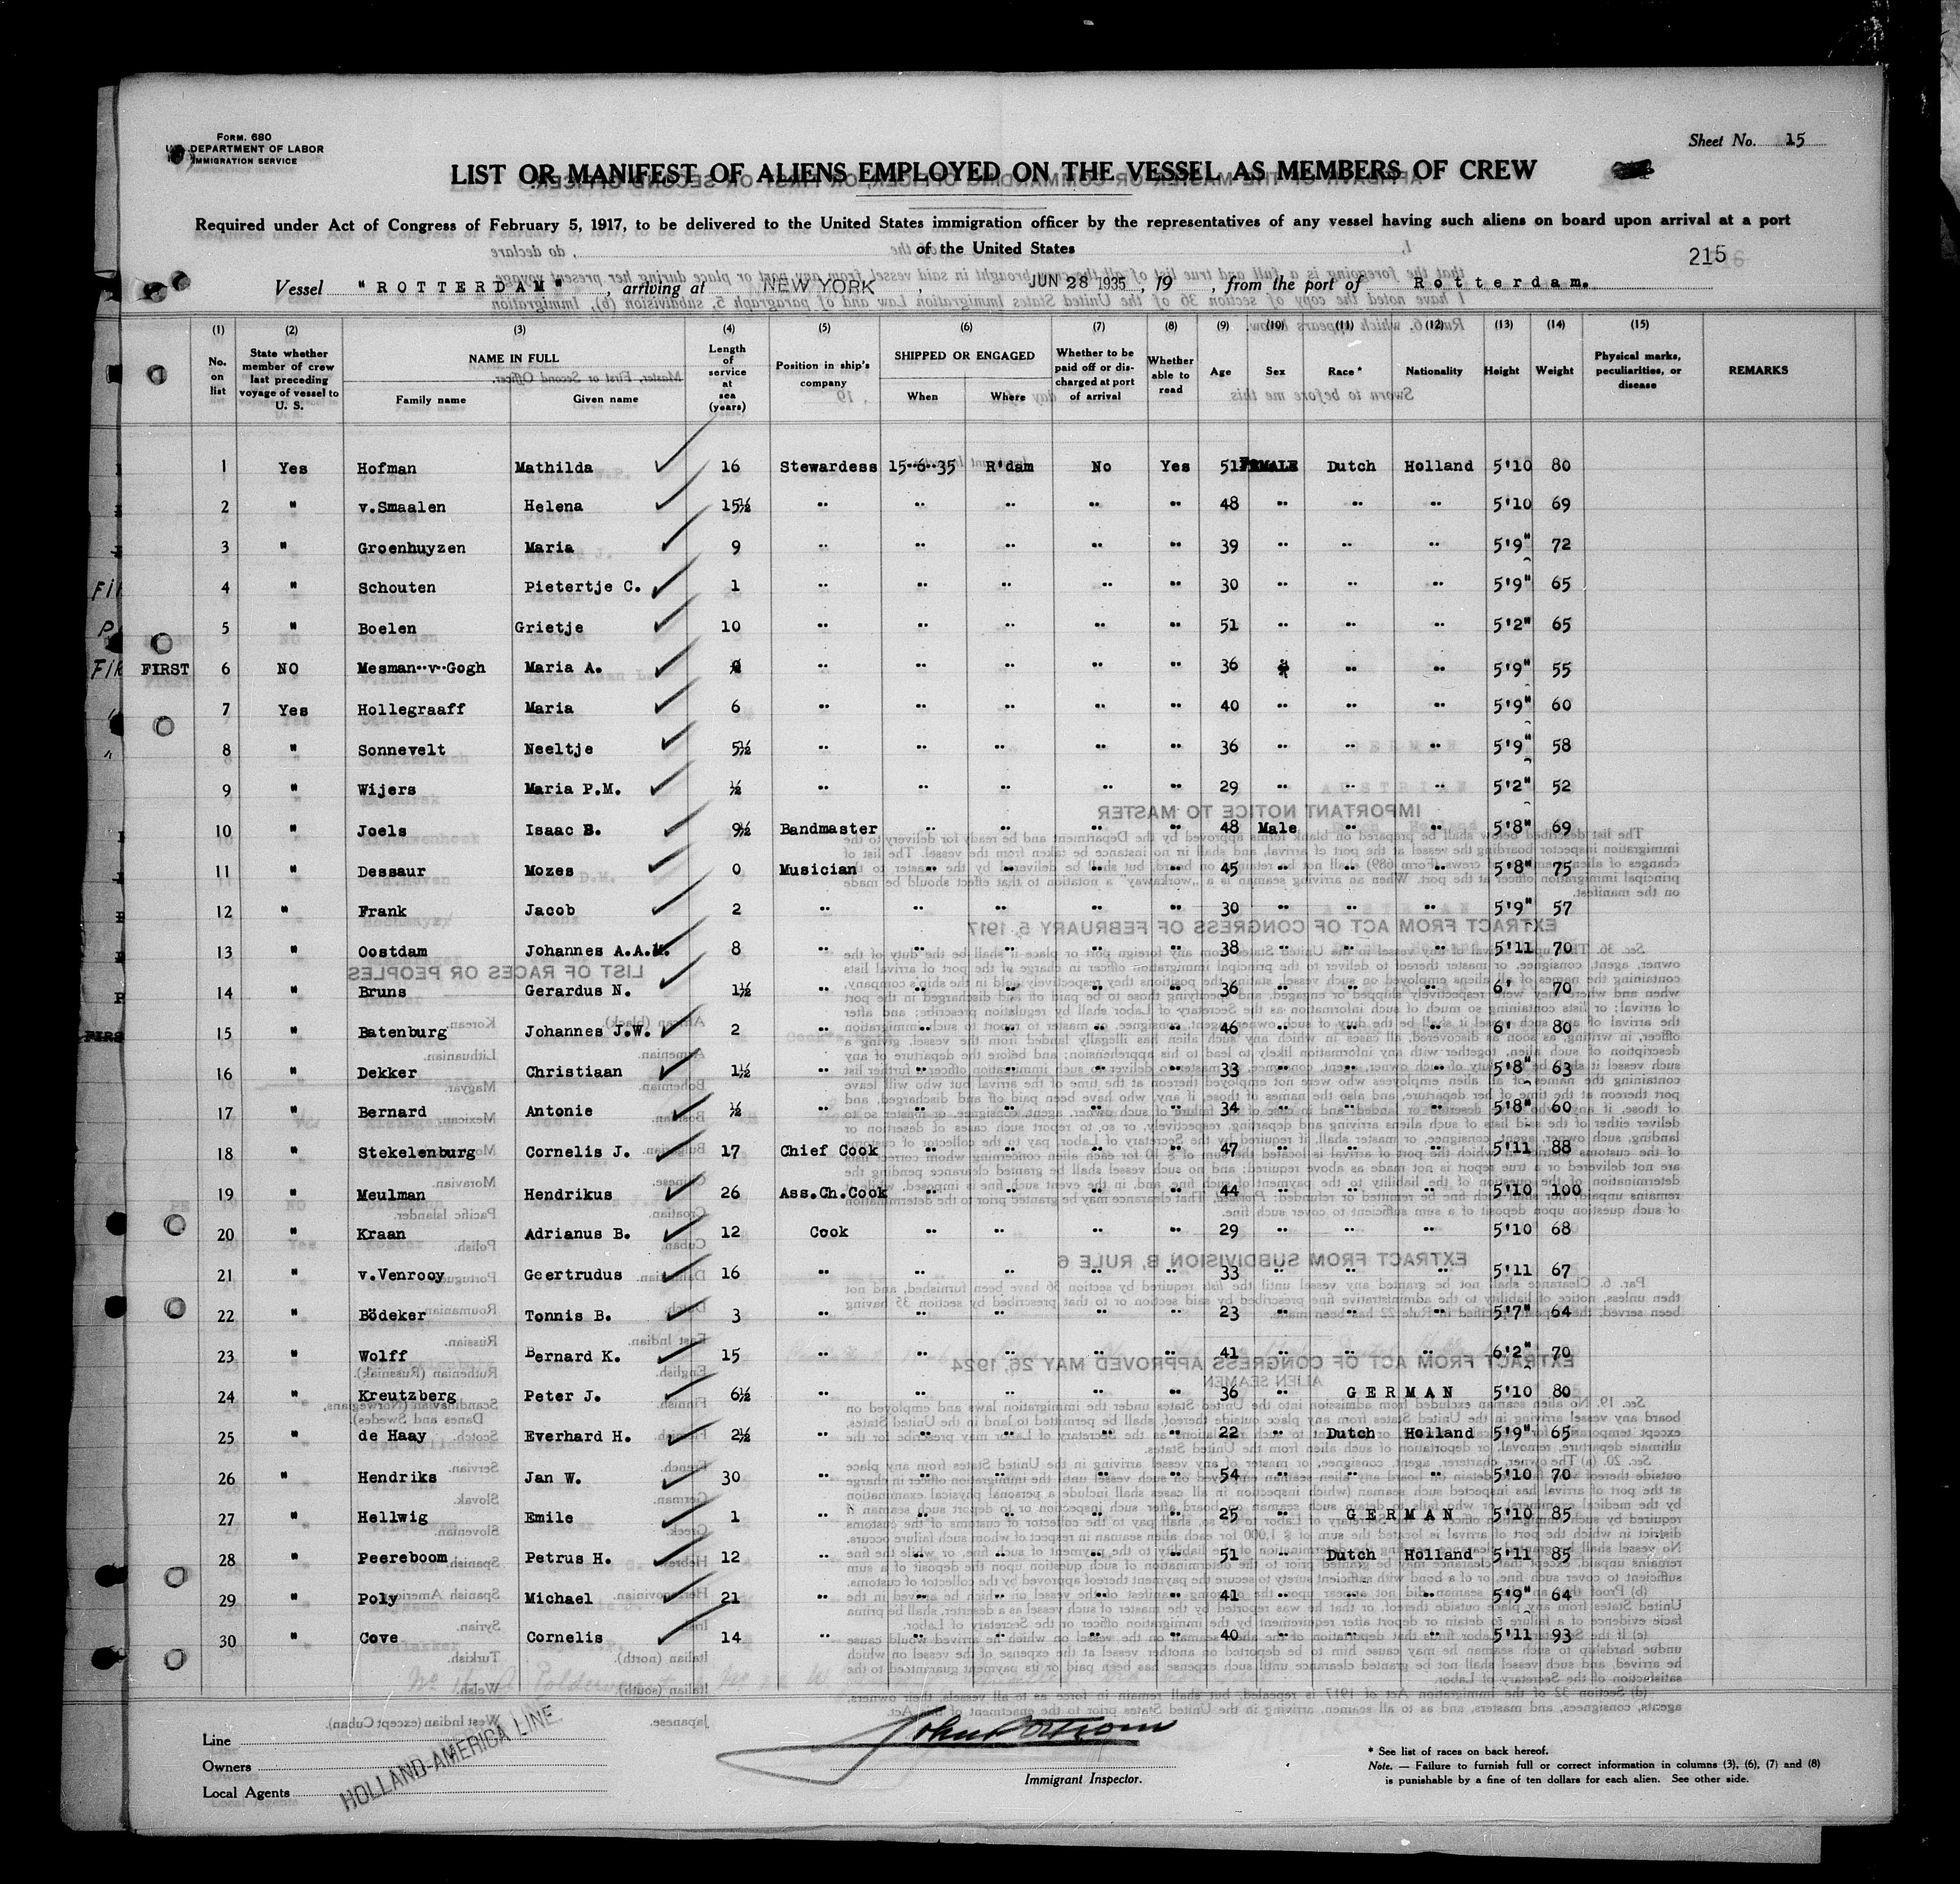 FORM. 680
U. S. DEPARTMENT OF LABOR
IMMIGRATION SERVICE
Sheet No. 15
LIST OR MANIFEST OF ALIENS EMPLOYED ON THE VESSEL AS MEMBERS OF CREW
Required under Act of Congress of February 5, 1917, to be delivered to the United States immigration officer by the representatives of any vessel having such aliens on board upon arrival at a port
of the United States
215
Vessel "ROTTERDAM", arriving at NEW YORK, JUN 28 1935, 19 , from the port of Rotterdam.
(1) (2) (3) (4) (5) (6) (7) (8) (9) (10) (11) (12) (13) (14) (15)
No. on list | State whether member of crew last preceding voyage of vessel to U. S. | NAME IN FULL | Family name | Given name | Length of service at sea (years) | Position in ship's company | SHIPPED OR ENGAGED | When | Where | Whether to be paid off or discharged at port of arrival | Whether able to read | Age | Sex | Race* | Nationality | Height | Weight | Physical marks, peculiarities, or disease | REMARKS
1 Yes Hofman Mathilda 16 Stewardess 15-6-35 R'dam No Yes 51 FEMALE Dutch Holland 5'10 80
2 " v.Smaalen Helena 15½ " " " " " 48 " " " 5'10 69
3 " Groenhuyzen Maria 9 " " " " " 39 " " " 5'9" 72
4 " Schouten Pietertje C. 1 " " " " " 30 " " " 5'9" 65
5 " Boelen Grietje 10 " " " " " 51 " " " 5'2" 65
FIRST 6 NO Mesman-v-Gogh Maria A. " " " " " 36 " " 5'9" 55
7 Yes Hollegraaff Maria 6 " " " " " 40 " " " 5'9" 60
8 " Sonnevelt Neeltje 5½ " " " " " 36 " " " 5'9" 58
9 " Wijers Maria P.M. ½ " " " " " 29 " " " 5'2" 52
10 " Joels Isaac B. 9½ Bandmaster " " " " 48 Male " " 5'8" 69
11 " Dessaur Mozes 0 Musician " " " " 45 " " " 5'8" 75
12 " Frank Jacob 2 " " " " " 30 " " " 5'9" 57
13 " Oostdam Johannes A.A.M. 8 " " " " " 38 " " " 5'11 70
14 " Bruns Gerardus N. 1½ " " " " " 36 " " " 6' 70
15 " Batenburg Johannes J.W. 2 " " " " " 46 " " " 6' 80
16 " Dekker Christiaan 1½ " " " " " 33 " " " 5'8" 63
17 " Bernard Antonie ½ " " " " " 34 " " " 5'8" 60
18 " Stekelenburg Cornelis J. 17 Chief Cook " " " " 47 " " " 5'11 88
19 " Meulman Hendrikus 26 Ass.Ch.Cook " " " " 44 " " " 5'10 100
20 " Kraan Adrianus B. 12 Cook " " " " 29 " " " 5'10 68
21 " v.Venrooy Geertrudus 16 " " " " " 33 " " " 5'11 67
22 " Bödeker Tonnis B. 3 " " " " " 23 " " " 5'7" 64
23 " Wolff Bernard K. 15 " " " " " 41 " " " 6'2" 70
24 " Kreutzberg Peter J. 6½ " " " " " 36 " GERMAN 5'10 80
25 " de Haay Everhard H. 2½ " " " " " 22 " Dutch Holland 5'9" 65
26 " Hendriks Jan W. 30 " " " " " 54 " " " 5'10 70
27 " Hellwig Emile 1 " " " " " 25 " GERMAN 5'10 85
28 " Peereboom Petrus H. 12 " " " " " 51 " Dutch Holland 5'11 85
29 " Poly Michael 21 " " " " " 41 " " " 5'9" 64
30 " Cove Cornelis 14 " " " " " 40 " " " 5'11 93
Line
Owners
Local Agents
HOLLAND-AMERICA LINE.
Immigrant Inspector.
* See list of races on back hereof.
Note. — Failure to furnish full or correct information in columns (3), (6), (7) and (8)
is punishable by a fine of ten dollars for each alien. See other side.